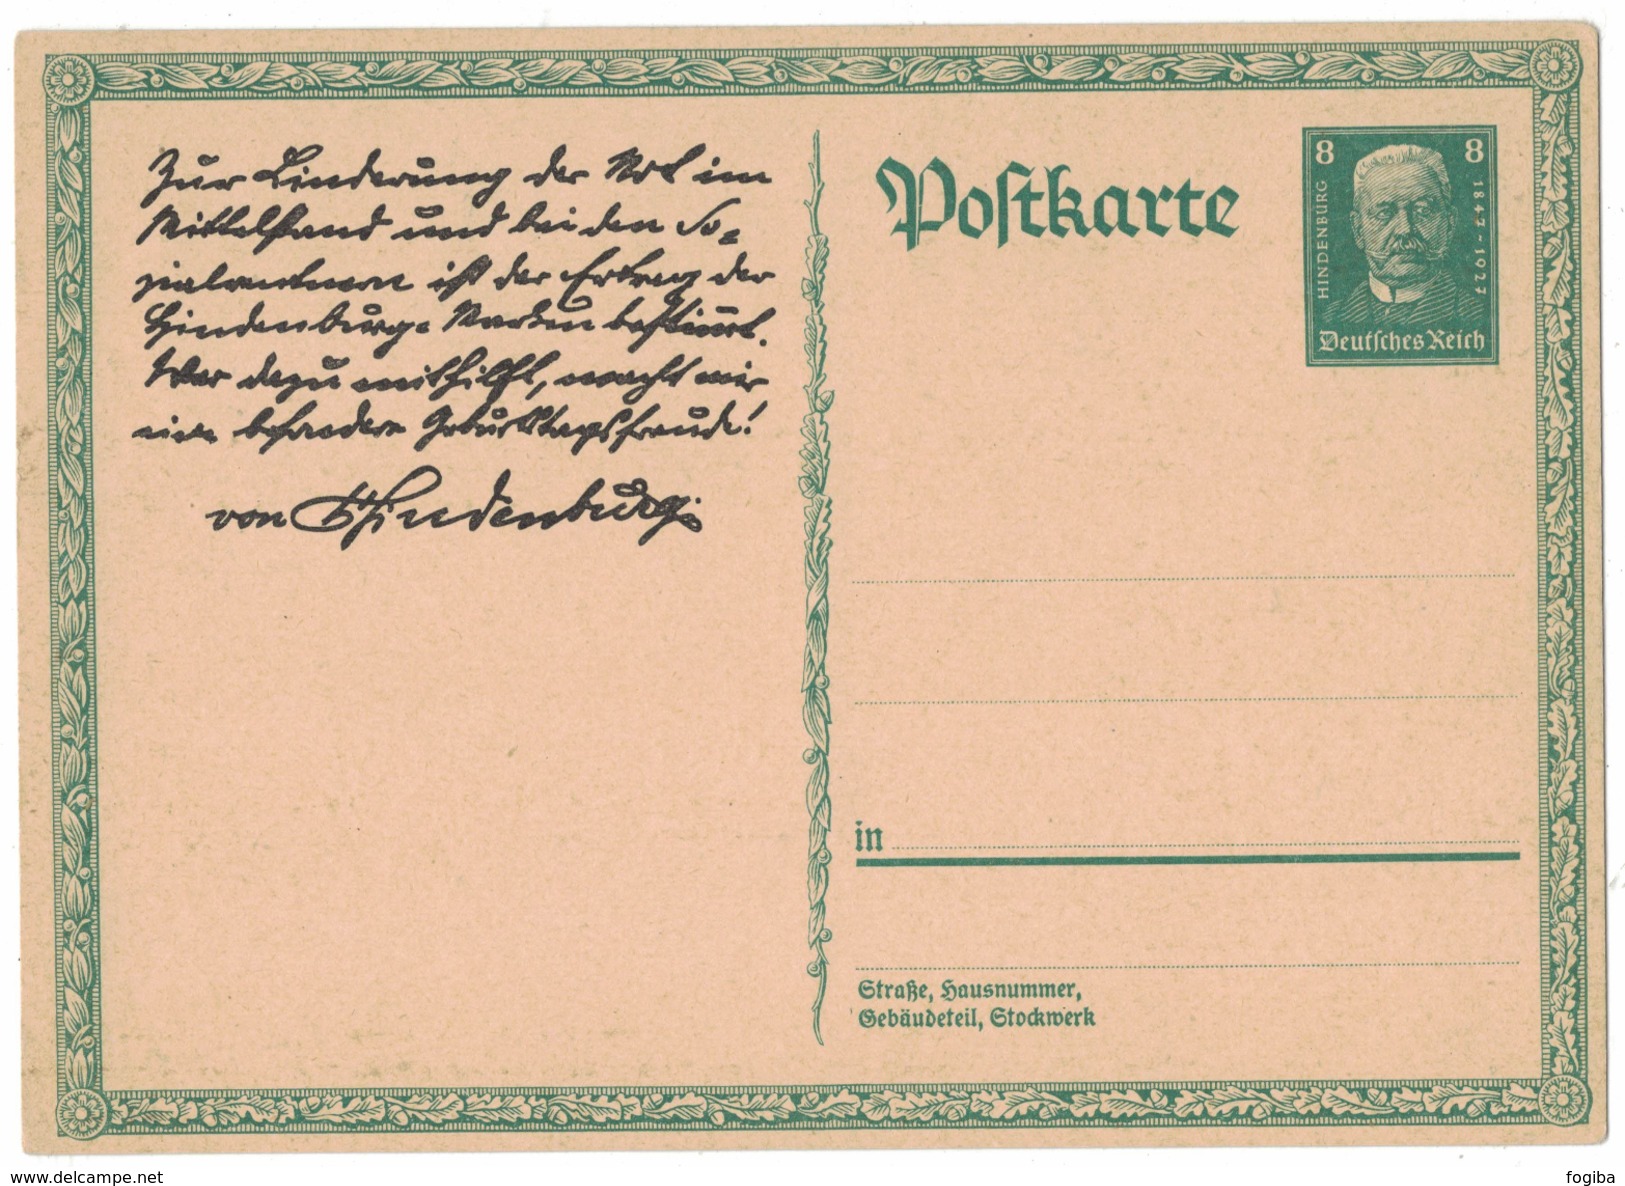 Zur Linderung der Not im
Mittelstand und bei den So=
zialrentnern ist der Ertrag der
Hindenburg= Marken bestimmt.
Wer dazu mithilft, macht mir
eine besondere Geburtstagsfreude!
von Hindenburg.
Postkarte
8 8
HINDENBURG
1847-1927
Deutsches Reich
in
Straße, Hausnummer,
Gebäudeteil, Stockwerk
www.delcampe.net
fogiba